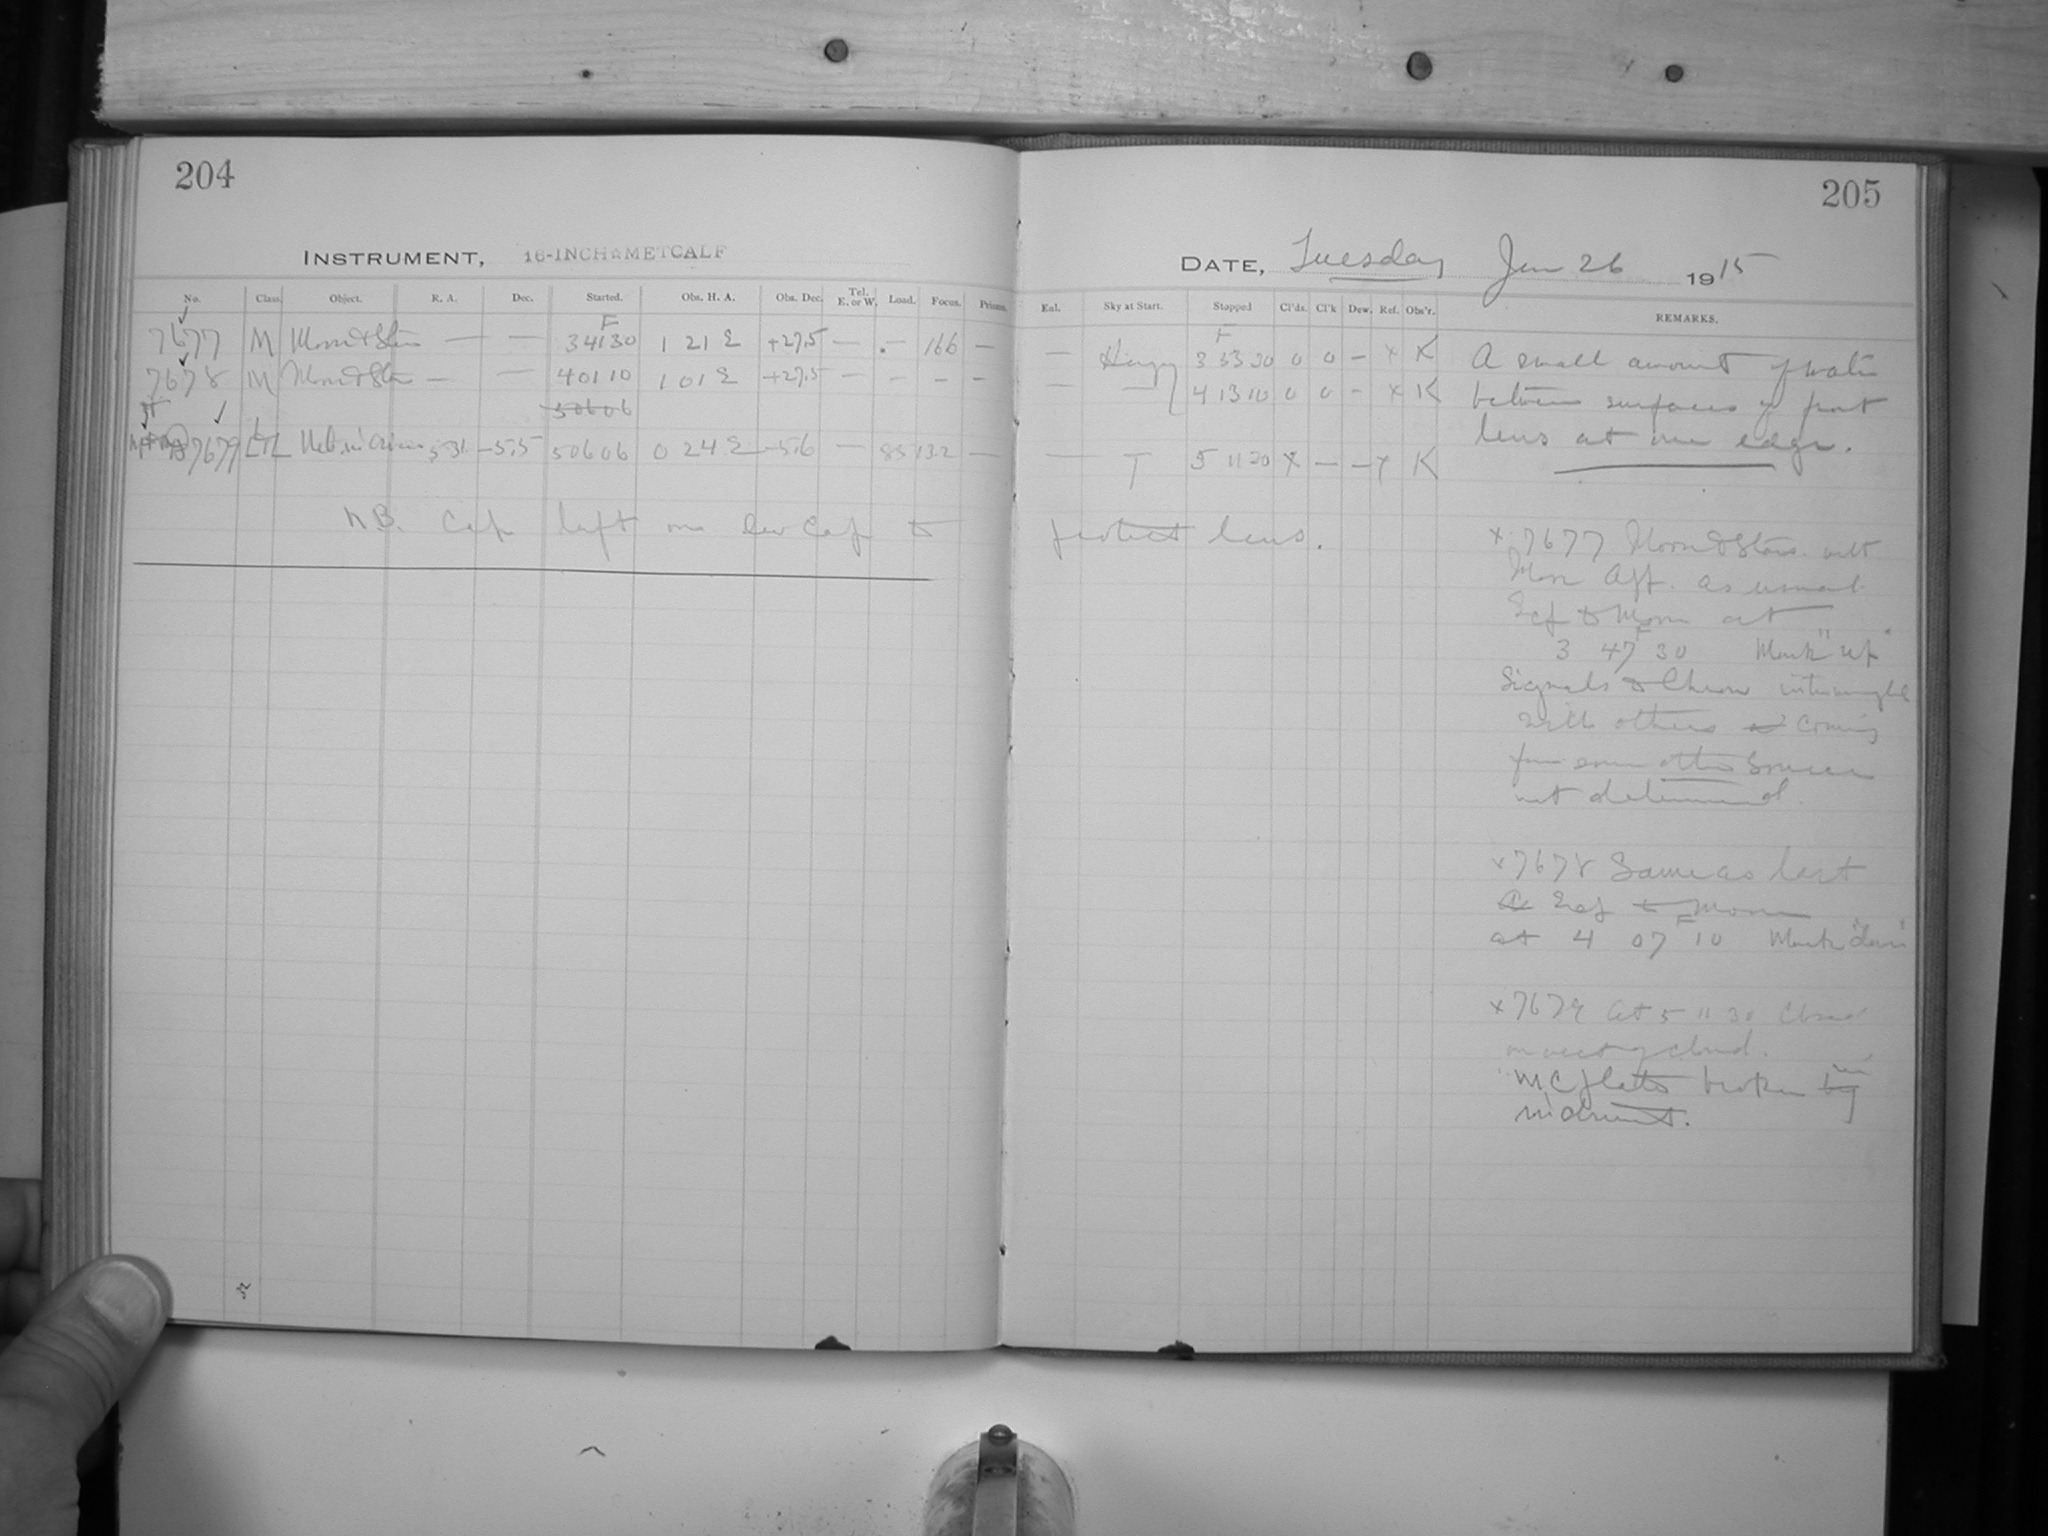 204
INSTRUMENT, 16-INCH☆METCALF
No. Class. Object. R. A. Dec. Started. Obs. H. A. Obs. Dec. Tel. E. or W. Load. Focus. Prisms.
F
7677 M Moon & Stars — — 34130 1 21 E +27.5 — — 166 —
7678 M Moon & Sts — — 40110 1 01 E +27.5 — — — —
50606
7679 Neb. in Orion 5 31 -5.5 50606 0 24 E -5.6 — 85 13.2 —
N.B. Cap left on Dew Cap to
205
DATE, Tuesday Jan 26 1915
Exl. Sky at Start. Stopped Cl'ds. Cl'k Dew. Ref. Obs'r. REMARKS.
F
— Hazy 3 53 30 0 0 — x K
— 4 13 10 0 0 — x K
— T 5 11 30 x — — x K
protect lens.
A small amount of water
between surfaces of front
lens at one edge.
x 7677 Moon & Stars with
Moon App. as usual
Exp to Moon at
3 47 F 30 Mark "up"
Signals & Chron intermingled
with others coming
from some other source
not determined.
x 7678 Same as last
Exp to Moon
at 4 07 F 10 Mark "down"
x 7679 At 5 11 30 Closed
on acct of cloud.
MC plate broken by in